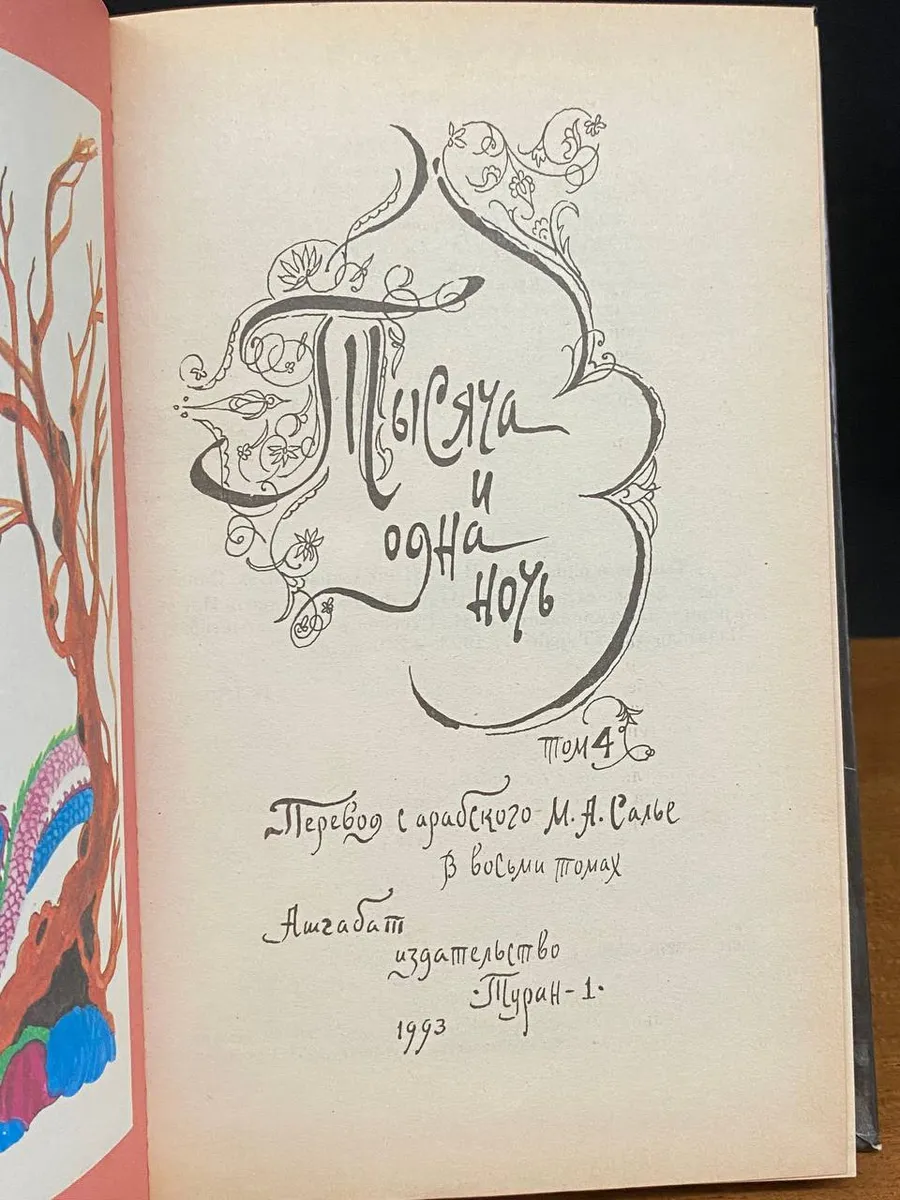 Тысяча
и
одна
ночь
том 4
Перевод с арабского М. А. Салье
В восьми томах
Ашгабат
издательство
·Туран-1·
1993